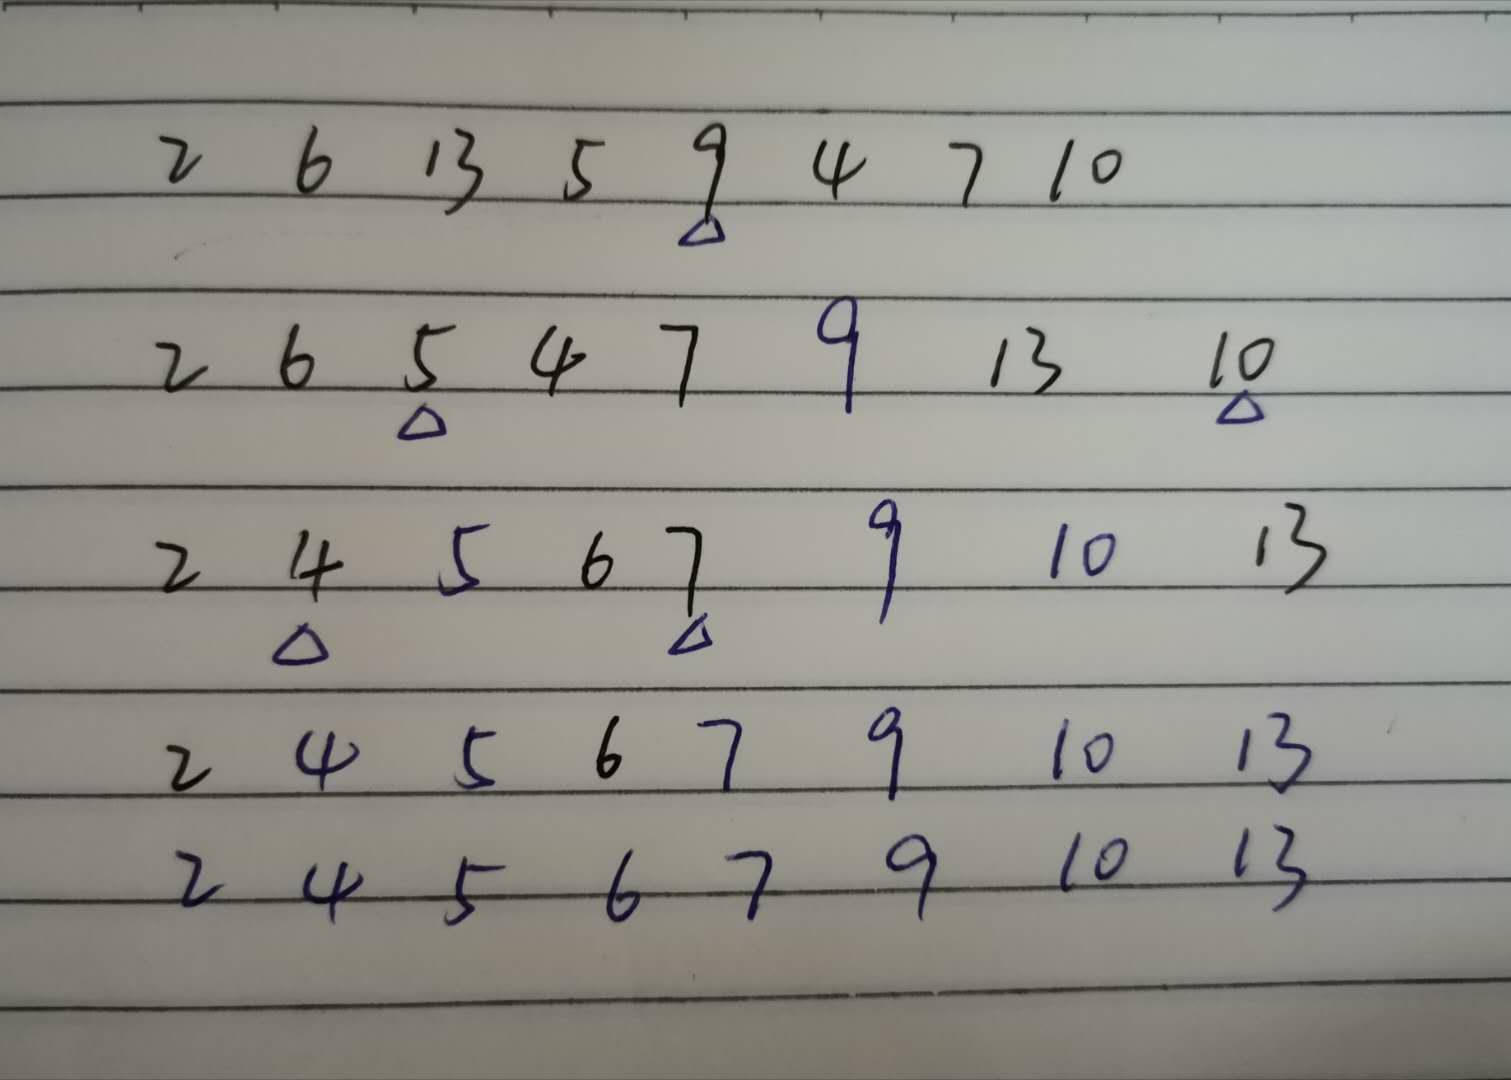 2 6 13 5 9 4 7 10
2 6 5 4 7 9 13 10
2 4 5 6 7 9 10 13
2 4 5 6 7 9 10 13
2 4 5 6 7 9 10 13